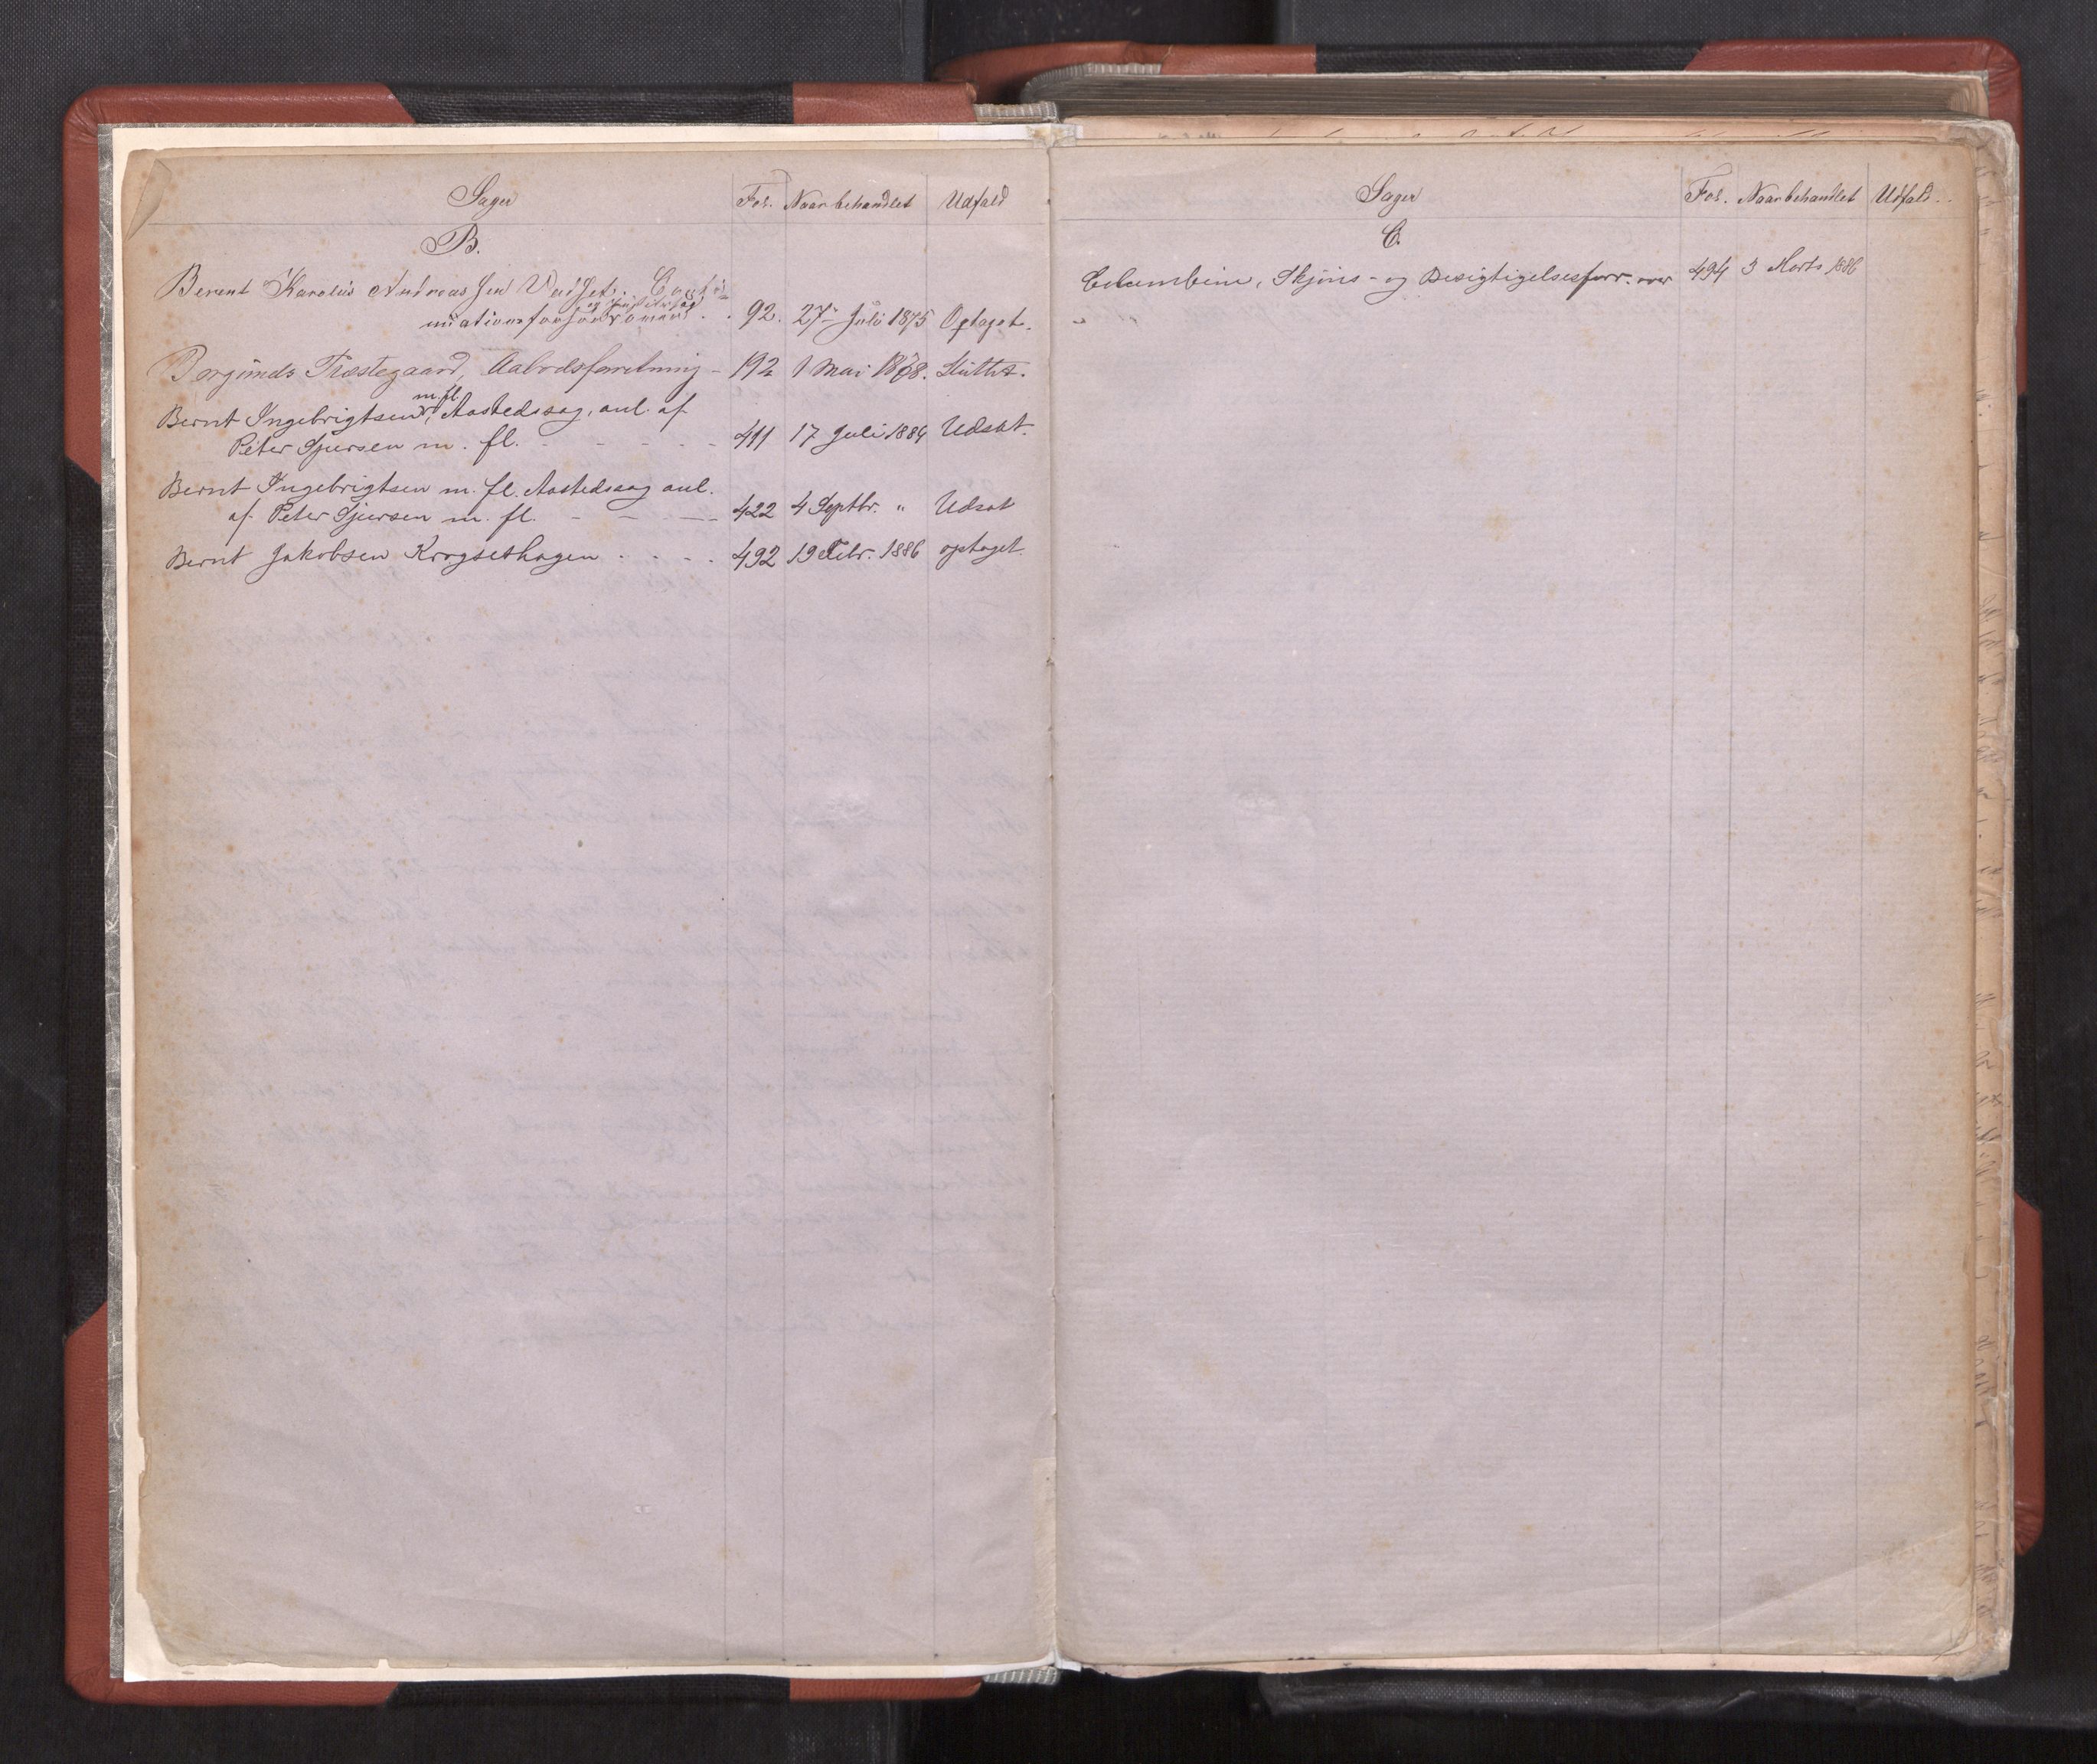 Sager Fol. Naar behandlet Udfald
B.
Berent Karolus Andreassen
92. 27 Juli 1875 Optaget.
Borgunds Præstegaard, Aabodsforretning - 192 1 Mai 1878. Sluttet.
m. fl.
Bernt Ingebrigtsen, Aastedssag, anl. af
Peter Sjursen m. fl. - - - - - 411 17 Juli 1884 Udsat.
Bernt Ingebrigtsen m. fl. Aastedssag anl.
af Peter Sjursen m. fl. - - - 422 4 Septbr. " Udsat
Bernt Jakobsen Krogsethagen . . - . 492 19 Febr. 1886 optaget.
Sager Fol. Naar behandlet Udfald.
C.
Columbine, Skjøns- og Besigtigelsesforr. over 494 3 Marts 1886